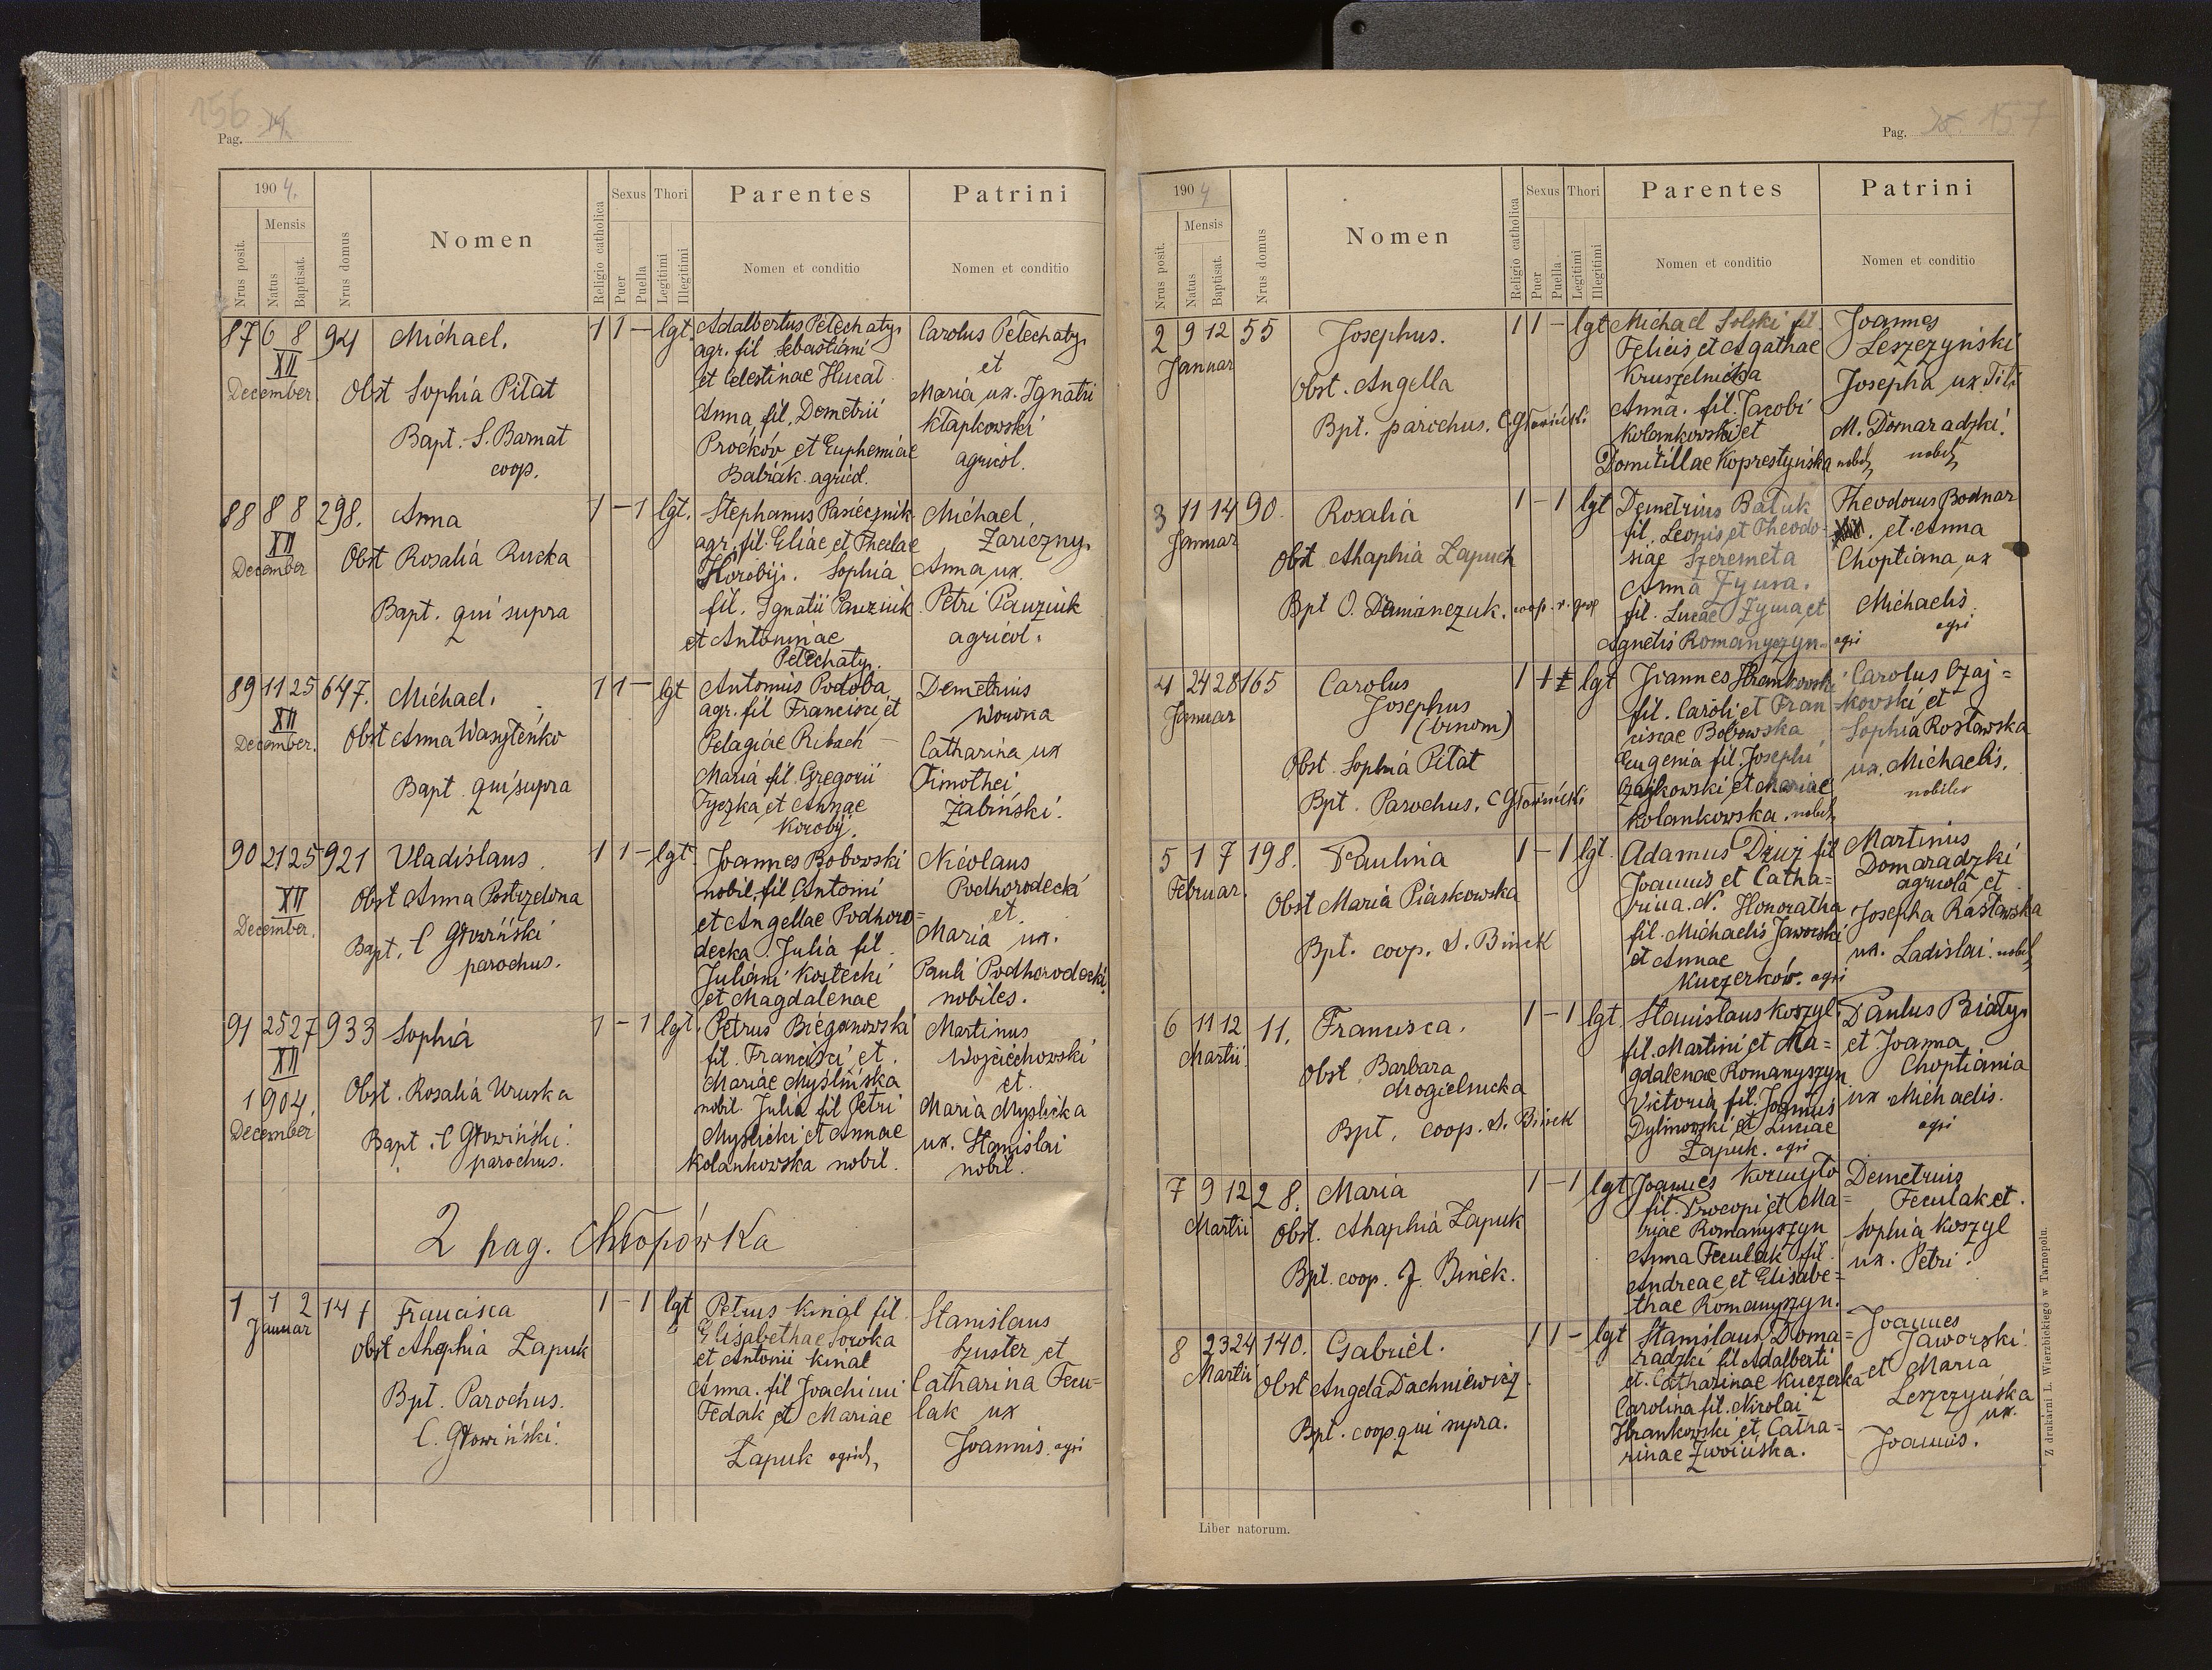 156
Pag.
1904.
Nrus posit.
Mensis
Natus
Baptisat.
Nrus domus
Nomen
Religio catholica
Sexus
Puer
Puella
Thori
Legitimi
Illegitimi
Parentes
Nomen et conditio
Patrini
Nomen et conditio
87 6 8 94 Michael. 1 1 - lgt.
XII
December
Obst Sophia Piłat
Bapt. S. Barnat
coop.
Adalbertus Pełechaty
agr. fil Sebastiani
et Celestinae Hucał
Anna, fil. Demetrii
Proćków et Euphemiae
Babiak agricol.
Carolus Pełechaty
et
Maria ux. Ignatii
Kłapkowski
agricol.
88 8 8 298. Anna 1 - 1 lgt.
XII
December
Obst Rosalia Rucka
Bapt. qui supra
Stephanus Pasiecznik
agr. fil. Eliae et Theclae
Horobij. Sophia
fil. Ignatii Pauziuk
et Antoninae
Pełechaty.
Michael
Zariczny
Anna ux.
Petri Pauziuk
agricol.
89 11 25 647. Michael. 1 1 - lgt
XII
December.
Obst Anna Wasyleńko
Bapt. qui supra
Antonius Podoba
agr. fil Francisci et
Pelagiae Ribach
Maria fil. Gregorii
Tyczka et Annae
Korobij.
Demetrius
Worona
Catharina ux
Timothei
Żabiński.
90 21 25 921 Vladislaus. 1 1 - lgt
XII
December.
Obst Anna Postrzelona
Bapt. C Głowiński
parochus.
Joannes Bobowski
nobil. fil Antonii
et Angellae Podhoro=
decka. Julia fil.
Juliani Kostecki
et Magdalenae
Nicolaus
Podhorodecki
et.
Maria ux.
Pauli Podhorodecki
nobiles.
91 25 27 933 Sophia 1 - 1 lgt.
XII
1904.
December
Obst. Rosalia Wruska
Bapt. C Głowiński.
parochus.
Petrus Bieganowski
fil. Francisci et.
Mariae Myślińska
nobil. Julia fil Petri
Myślicki et Annae
Kolankowska nobil.
Martinus
Wojciechowski
et.
Maria Myslicka
ux. Stanislai
nobil.
2 pag. Chłopówka
1 1 2 147 Francisca 1 - 1 lgt
Januar
Obst Ahaphia Łapuk
Bpt. Parochus.
C. Głowiński.
Petrus Kinal fil
Elisabethae Sowka
et Antonii Kinal
Anna. fil Joachimi
Fedak et Mariae
Łapuk agricol,
Stanislaus
Szuster et
Catharina Fecu=
lak ux
Joannis. agri
Pag. 157
1904
Nrus posit.
Mensis
Natus
Baptisat.
Nrus domus
Nomen
Religio catholica
Sexus
Puer
Puella
Thori
Legitimi
Illegitimi
Parentes
Nomen et conditio
Patrini
Nomen et conditio
2 9 12 55 Josephus. 1 1 - lgt
Januar
Obst. Angella
Bpt. parochus. C. Głowiński
Michael Solski fil.
Felicis et Agathae
Kruszelnicka
Anna. fil. Jacobi
Kolankowski et
Domitillae Koprestyńska nobil,
Joannes
Leszczyński
Josepha ux Titi
M. Domaradzki.
nobil,
3 11 14 90. Rosalia 1 - 1 lgt
Januar
Obst Ahaphia Łapuch
Bpt O. Damianczuk. coop. r. gr.
Demetrius Bałuk
fil. Leonis et Theodo=
siae Szeremeta
Anna Zyma.
fil. Lucae Zyma et
Agnetis Romanyczyn- agri
Theodorus Bodnar
et Anna
Choptiana ux
Michaelis
agri
4 24 28 165 Carolus 1 1 lgt
Januar
Josephus
(binom)
Obst. Sophia Piłat
Bpt. Parochus. C Głowiński
Joannes Hrankowski
fil. Caroli et Fran=
ciscae Bobowska
Eugenia fil. Josephi
Czajkowski et Mariae
Kolankowska. nobil,
Carolus Czaj=
kowski et
Sophia Rosławska
ux. Michaelis.
nobiles
5 1 7 198. Paulina 1 - 1 lgt.
Februar.
Obst Maria Piaskowska
Bpt. coop. S. Binek
Adamus Dziuz fil
Joannis et Catha=
rina. N. Honoratha
fil. Michaelis Jaworski
et Annae
Kuczerków. agri
Martinus
Domaradzki
agricola et
Josepha Rasławska
ux. Ladislai. nobil,
6 11 12 11. Francisca. 1 - 1 lgt.
Martii
Obst Barbara
Mogielnicka
Bpt. coop. S. Binek
Stanislaus Koszyl
fil. Martini et Ma=
gdalenae Romanyszyn
Victoria fil. Joannis
Dylinowski et Luciae
Łapuk. agri
Paulus Biały
et Joanna
Choptiania
ux Michaelis.
agri
7 9 12 28. Maria 1 - 1 lgt
Martii
Obst. Ahaphia Łapuk
Bpt. coop. J. Binek.
Joannes Kormyło
fil. Procopi et Ma=
riae Romanyszyn
Anna Feculak fil.
Andreae et Elisabe=
thae Romanyszyn.
Demetrius
Feculak et.
Sophia Koszyl
ux. Petri.
8 23 24 140. Gabriel. 1 1 - lgt
Martii
Obst Angela Dachniewicz
Bpt. coop qui supra.
Stanislaus Doma=
radzki fil Adalberti
et. Catharinae Kuczerka
Carolina fil. Nicolai
Hrankowski et Catha=
rinae Zwoińska.
Joannes
Jaworski
et Maria
Leszczyńska
ux.
Joannis.
Liber natorum.
Z drukarni L. Wierzbickiego w Tarnopolu.